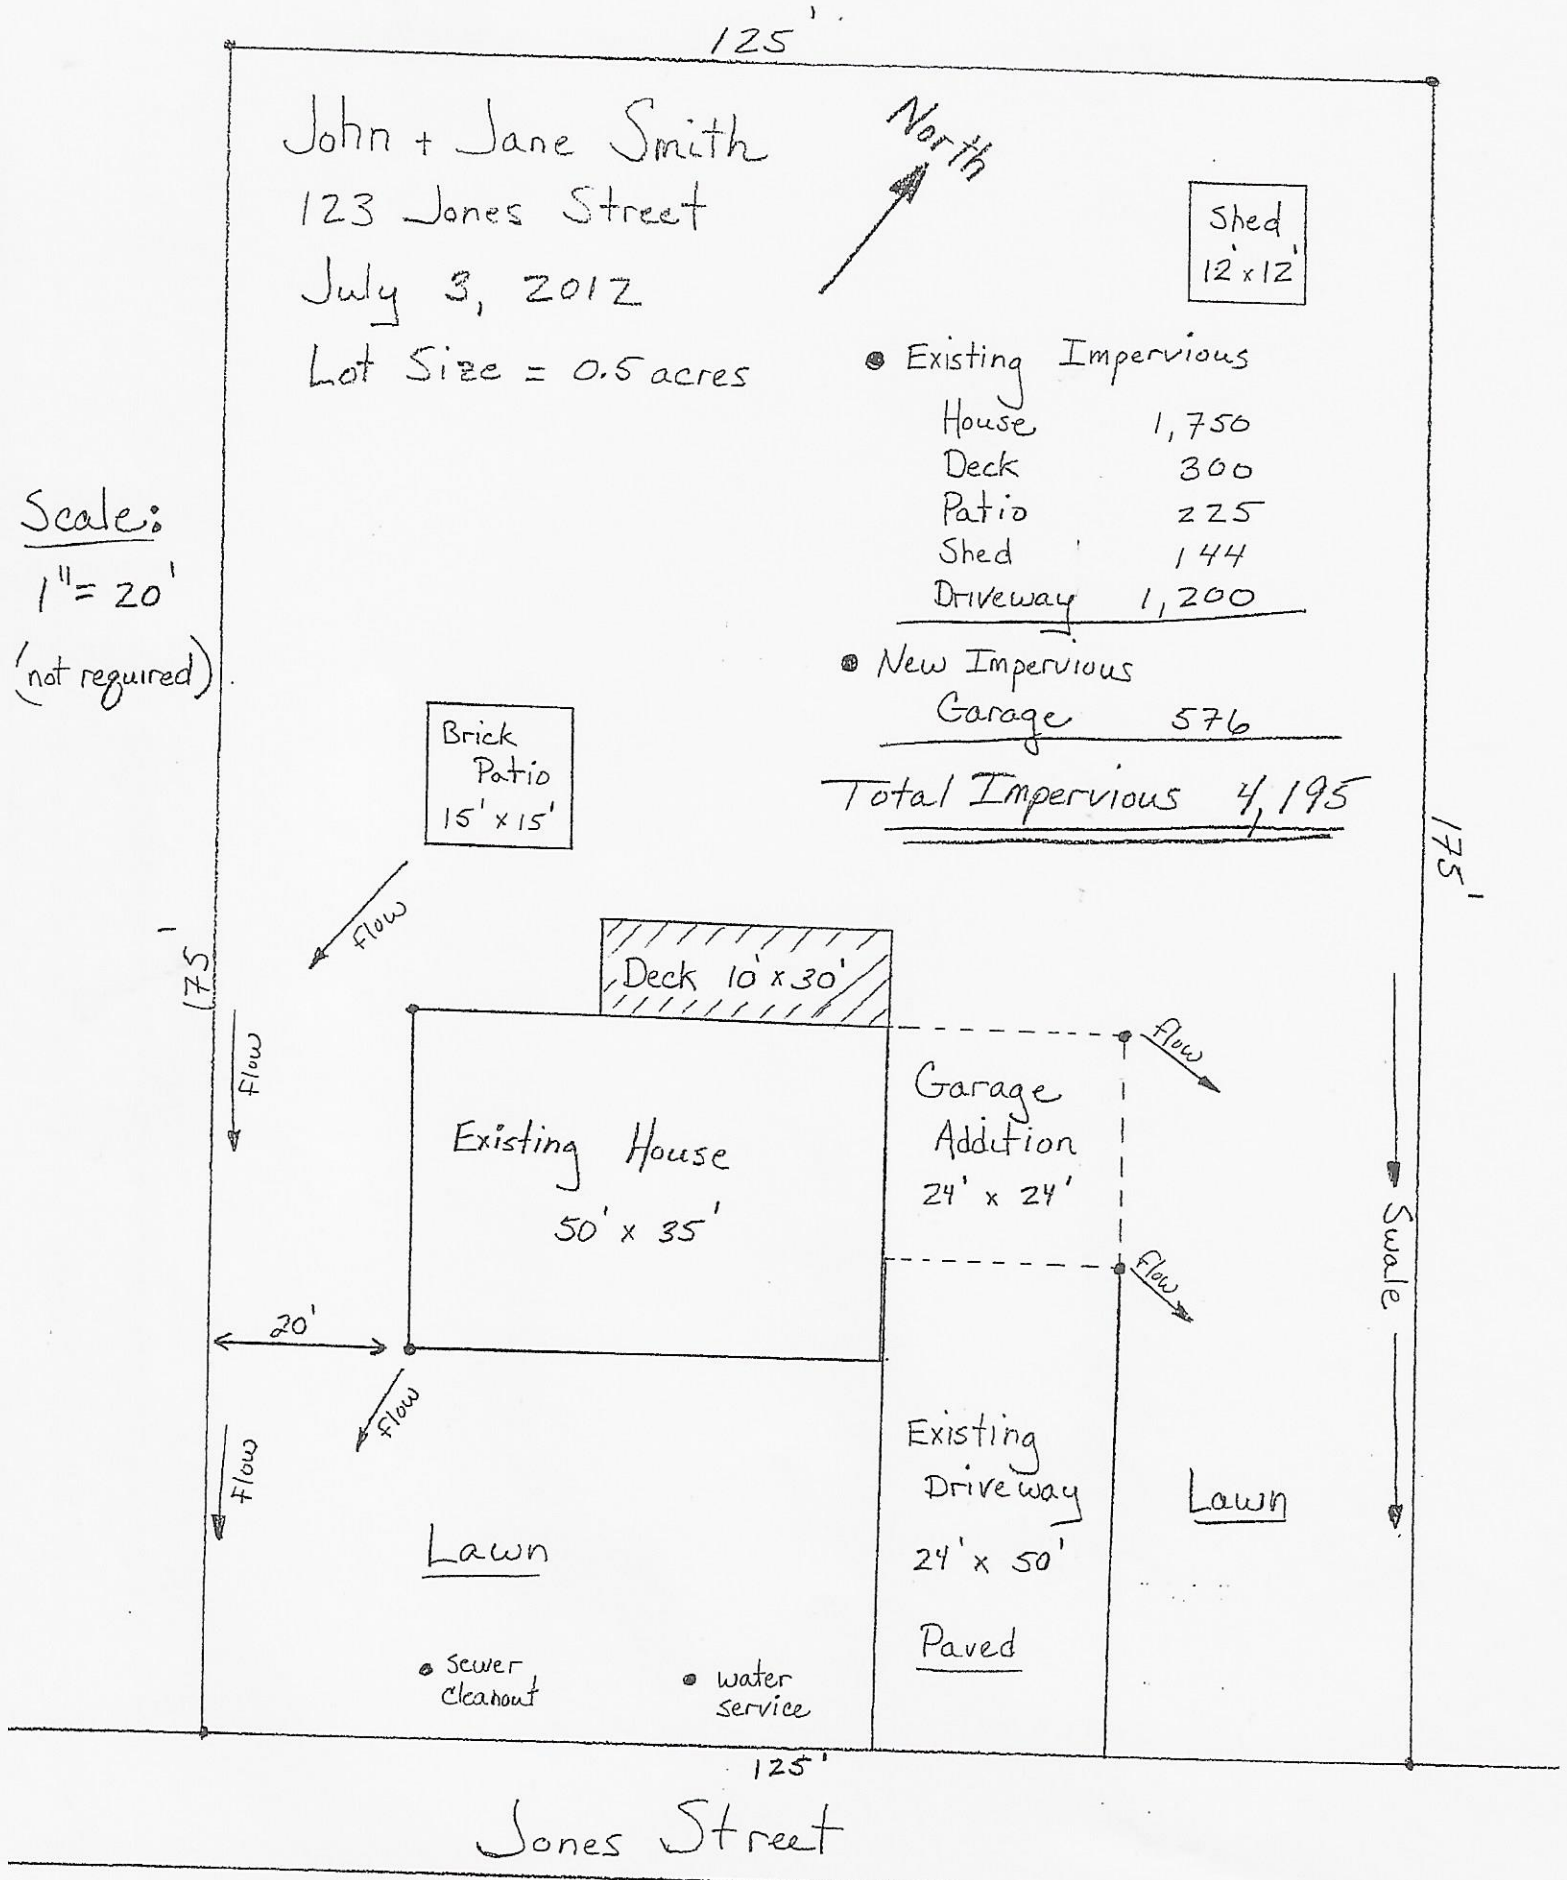 125'
John + Jane Smith
123 Jones Street
July 3, 2012
Lot Size = 0.5 acres
North
Shed
12' x 12'
• Existing Impervious
House 1,750
Deck 300
Patio 225
Shed 144
Driveway 1,200
• New Impervious
Garage 576
Total Impervious 4,195
Scale:
1" = 20'
(not required)
Brick
Patio
15' x 15'
175'
175'
flow
Deck 10' x 30'
flow
flow
Garage
Addition
24' x 24'
Existing House
50' x 35'
flow
Swale
20'
flow
flow
Existing
Driveway
24' x 50'
Paved
Lawn
Lawn
• sewer
cleanout
• water
service
125'
Jones Street